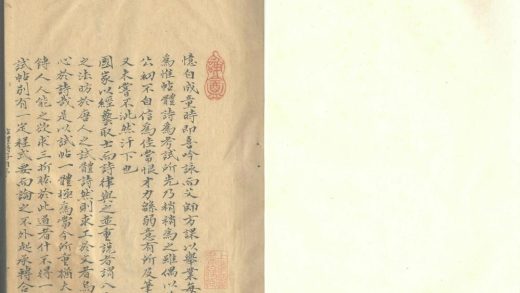 憶自成童時即喜吟詠而父師方課以舉業每
為惟帖體詩為考試所先乃稍稍為之雖偶以
公初不自信為佳當恨才力綿弱意有所及筆
又未嘗不洸然汗下也
國家以經藝取士而詩律與之並重説者謂八
之法昉於唐人之試體詩然則求工於文者烏
心於詩哉是以試帖一體極為當今所重操大
詩人人能之欲求三折肱於此道者什不得一
試帖別有一定程式要而論之不外起承轉合